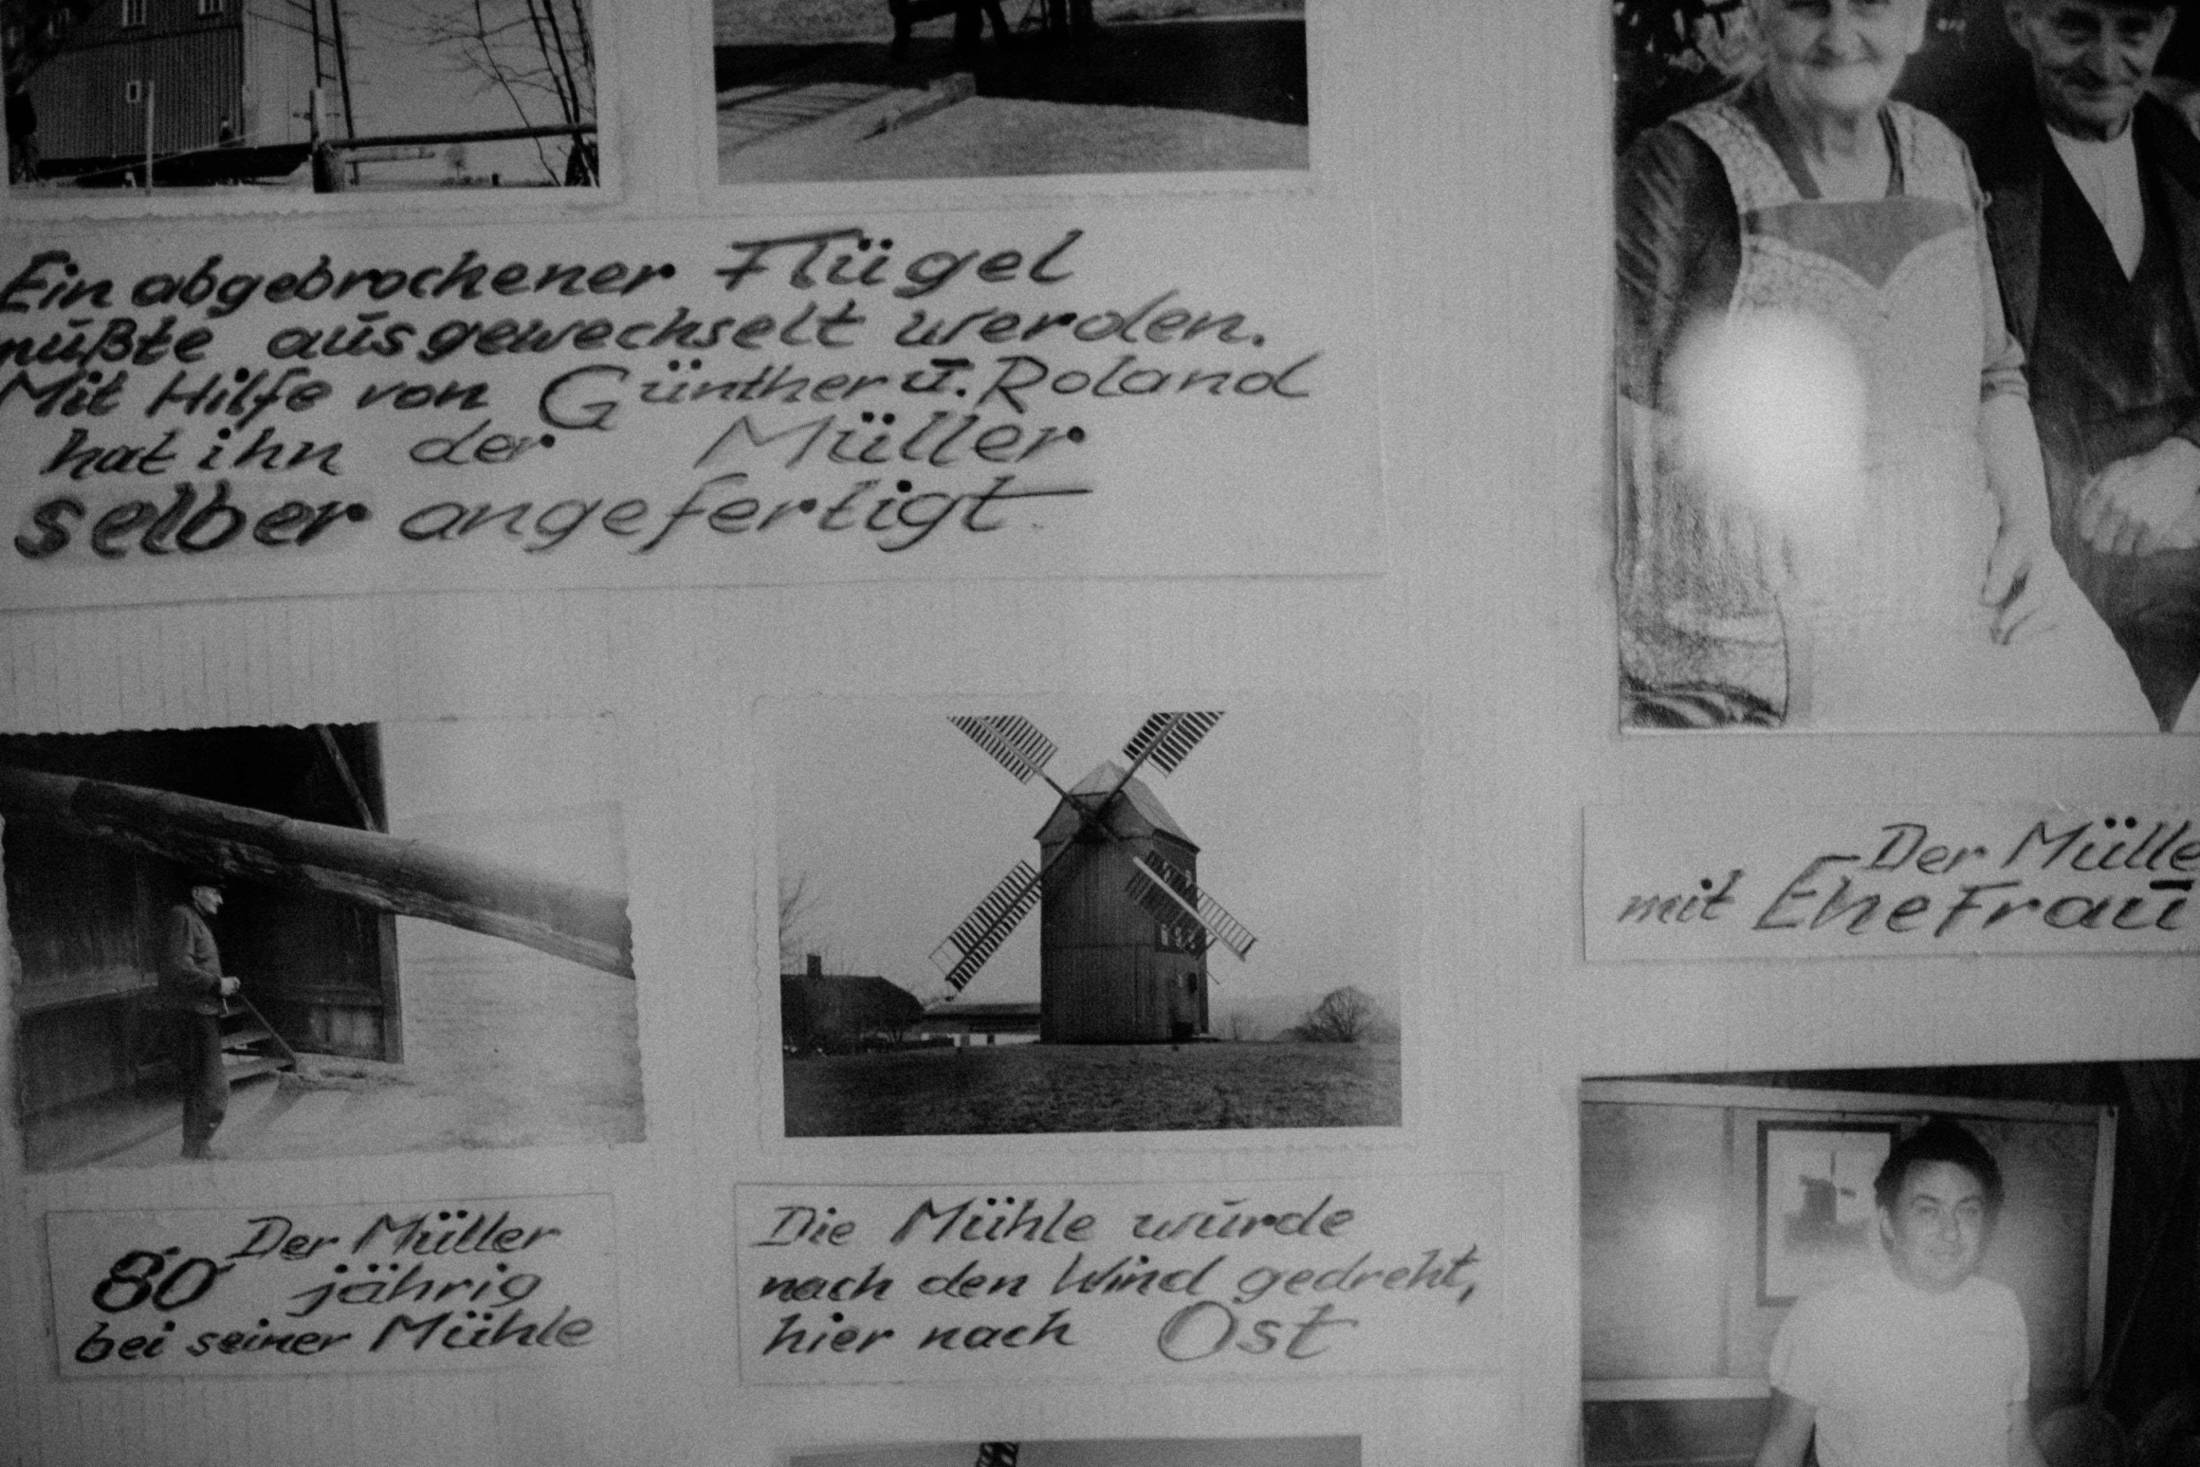 Ein abgebrochener Flügel
mußte ausgewechselt werden.
Mit Hilfe von Günther u. Roland
hat ihn der Müller
selber angefertigt
Der Mülle
mit Ehefrau
Der Müller
80 jährig
bei seiner Mühle
Die Mühle wurde
nach den Wind gedreht,
hier nach Ost